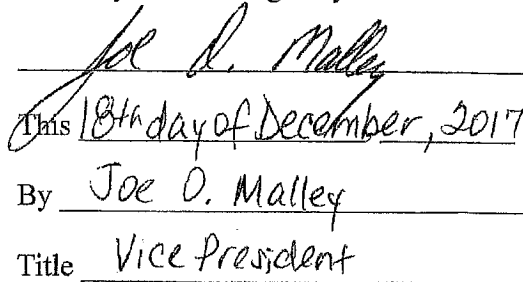 Joe D. Malley
This 18th day of December, 2017
By Joe O. Malley
Title Vice President